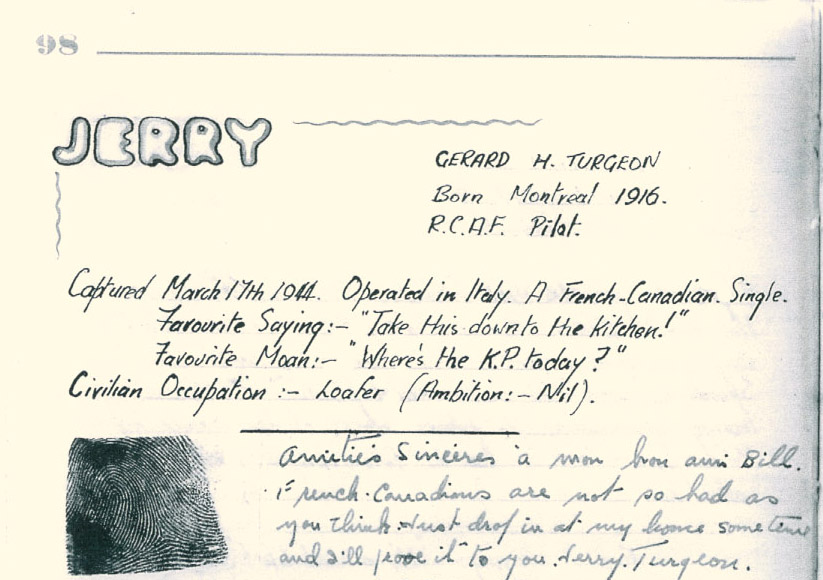 98
JERRY
GERARD H. TURGEON
Born Montreal 1916.
R.C.A.F. Pilot.
Captured March 17th 1944. Operated in Italy. A French-Canadian. Single.
Favourite Saying:- "Take this down to the kitchen!"
Favourite Moan:- "Where's the K.P. today?"
Civilian Occupation:- Loafer (Ambition:- Nil).
Amitiés Sincères à mon bon ami Bill.
French-Canadians are not so bad as
you think. Just drop in at my home sometime
and I'll prove it to you. Jerry. Turgeon.